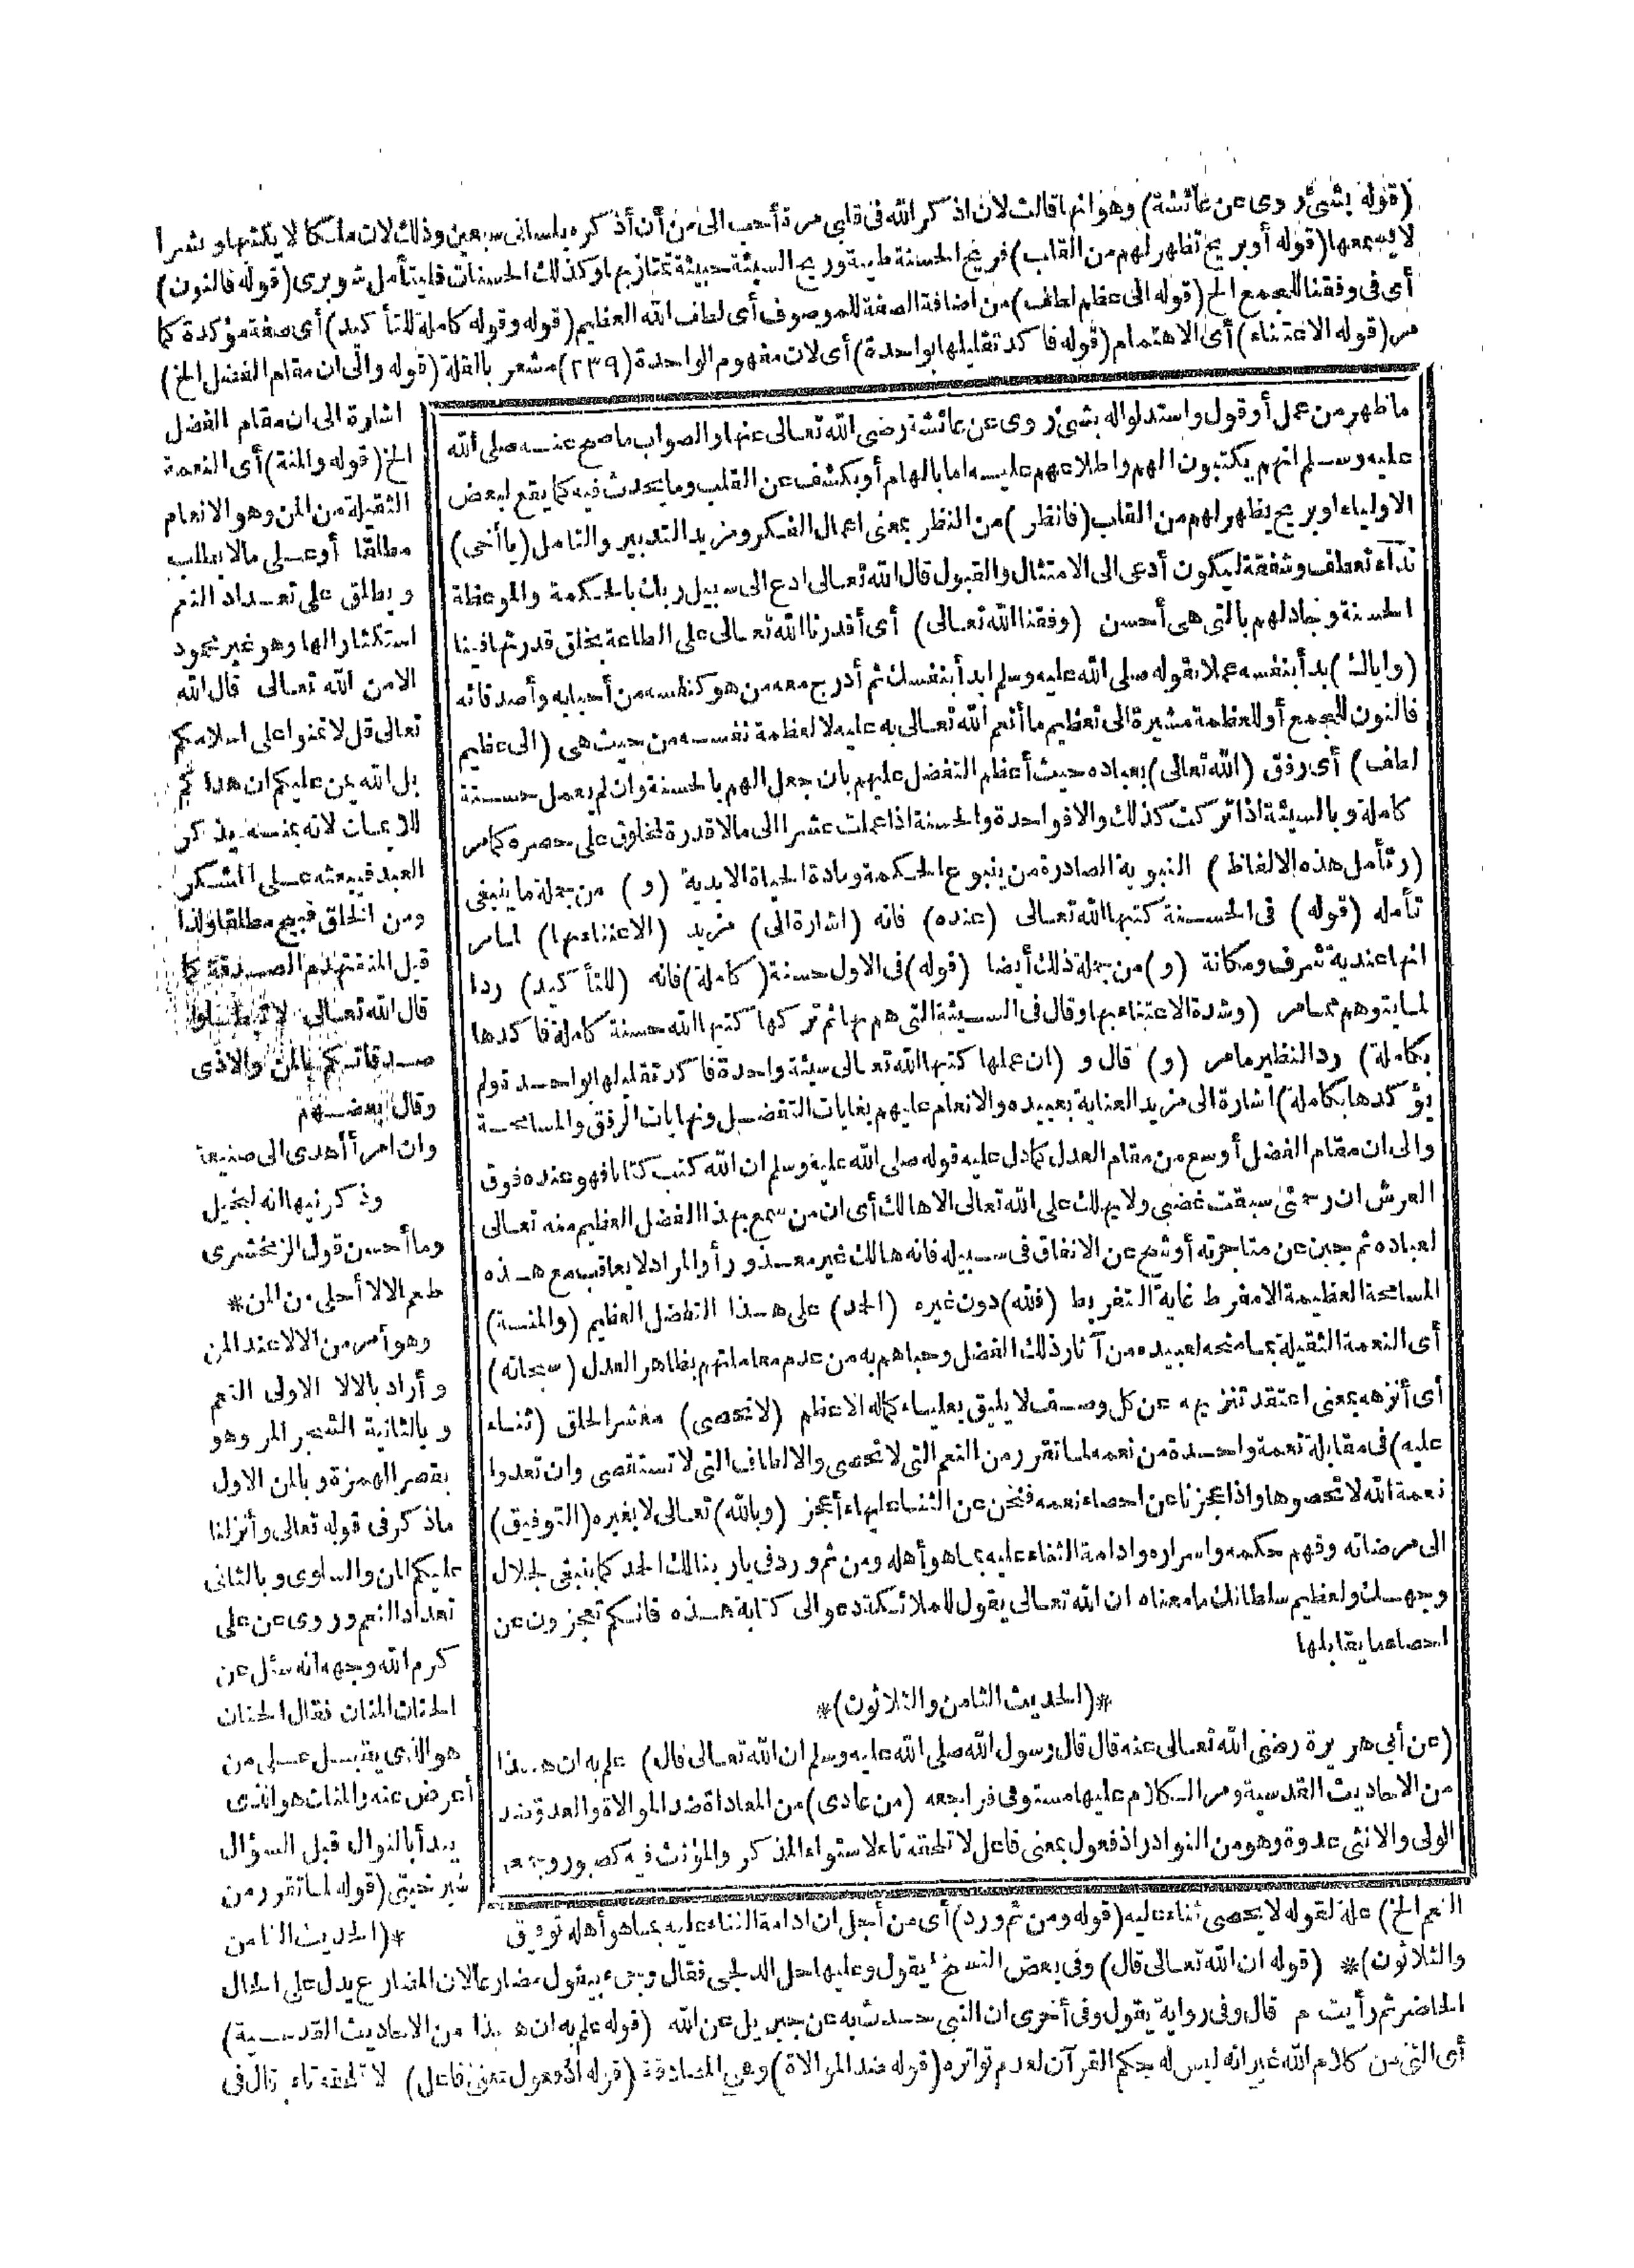 (قوله بشئ روى عن عائشة) وهو انها قالت لان اذكر الله فى قلبى مرة أحب الى من أن أذكره بلسانى سبعين وذلك لان ملكا لا يكتبها وبشرا
لا يسمعها (قوله أو بريح تظهر لهم من القلب) فريح الحسنة طيبة وريح السيئة خبيثة تمتاز بها وكذلك الحسنات فليتأمل شوبرى (قوله فالنون)
أى فى وفقنا للجمع الخ (قوله الى عظيم لطف) من اضافة الصفة للموصوف أى لطف الله العظيم (قوله وقوله كاملة للتأكيد) أى صفة مؤكدة كما
مر (قوله الاعتناء) أى الاهتمام (قوله فاكد تقليلها بواحدة) أى لان مفهوم الواحدة (٢٣٩) مشعر بالقلة (قوله والى ان مقام الفضل الخ)
ما ظهر من عمل أو قول واستدلوا له بشئ روى عن عائشة رضى الله تعالى عنها والصواب ما صح عنه صلى الله
عليه وسلم انهم يكتبون الهم واطلاعهم عليه اما بالهام أو بكشف عن القلب وما يحدث فيه كما يقع لبعض
الاولياء او بريح يظهر لهم من القلب (فانظر) من النظر بمعنى اعمال الفكر ومزيد التدبير والتأمل (يا أخى)
نداء تعطف وشفقة ليكون أدعى الى الامتثال والقبول قال الله تعالى ادع الى سبيل ربك بالحكمة والموعظة
الحسنة وجادلهم بالتى هى أحسن (وفقنا الله تعالى) أى أقدرنا الله تعالى على الطاعة بخلق قدرتها فينا
(واياك) بدأ بنفسه عملا بقوله صلى الله عليه وسلم ابدأ بنفسك ثم أدرج معه من هو كنفسه من أحبابه وأصدقائه
فالنون للجمع أو للعظمة مشيرة الى تعظيم ما أنعم الله تعالى به عليه لا لعظمة نفسه من حيث هى (الى عظيم
لطف) أى رفق (الله تعالى) بعباده حيث أعظم التفضل عليهم بان جعل الهم بالحسنة وان لم يعمل حسنة
كاملة وبالسيئة اذا تركت كذلك والا فواحدة والحسنة اذا عملت عشرا الى ما لا قدرة لمخلوق على حصره كما مر
(وتأمل هذه الالفاظ) النبوية الصادرة من ينبوع الحكمة ومادة الحياة الابدية (و) من جملة ما ينبغى
تأمله (قوله) فى الحسنة كتبها الله تعالى (عنده) فانه (اشارة الى) مزيد (الاعتناء بها) لما مر
انها عندية شرف ومكانة (و) من جملة ذلك أيضا (قوله) فى الاول حسنة (كاملة) فانه (للتأكيد) ردا
لما يتوهم مما مر (وشدة الاعتناء بها وقال فى السيئة التى هم بها ثم تركها كتبها الله حسنة كاملة فاكدها
بكاملة) رد النظير ما مر (و) قال و (ان عملها كتبها الله تعالى سيئة واحدة فاكد تقليلها بواحدة ولم
يؤكدها بكاملة) اشارة الى مزيد العناية بعبيده والانعام عليهم بغايات التفضل ونهايات الرفق والمسامحة
والى ان مقام الفضل أوسع من مقام العدل كما دل عليه قوله صلى الله عليه وسلم ان الله كتب كتابا فهو عنده فوق
العرش ان رحمتى سبقت غضبى ولا يهلك على الله تعالى الا هالك أى ان من سمع بهذا الفضل العظيم منه تعالى
لعباده ثم جبن عن متاجرته أو شح عن الانفاق فى سبيله فانه هالك غير معذور أو المراد لا يعاقب مع هذه
المسامحة العظيمة الا مفرط غاية التفريط (فلله) دون غيره (الحمد) على هذا التفضل العظيم (والمنة)
أى النعمة الثقيلة بما منحه لعبيده من آثار ذلك الفضل وحباهم به من عدم معاملتهم بظاهر العدل (سبحانه)
أى أنزهه بمعنى اعتقد تنزيهه عن كل وصف لا يليق بعلياء كماله الاعظم (لا نحصى) معشر الخلق (ثناء
عليه) فى مقابلة نعمة واحدة من نعمه لما تقرر من النعم التى لا تحصى والالطاف التى لا تستقصى وان تعدوا
نعمة الله لا تحصوها واذا عجزنا عن احصاء نعمه فنحن عن الثناء عليها أعجز (وبالله) تعالى لا بغيره (التوفيق)
الى مرضاته وفهم حكمه واسراره وادامة الثناء عليه بما هو أهله ومن ثم ورد فى يا ربنا لك الحمد كما ينبغى لجلال
وجهك ولعظيم سلطانك ما معناه ان الله تعالى يقول للملائكة دعوا الى كتابة هذه فانكم تعجزون عن
احصاء ما يقابلها
*(الحديث الثامن والثلاثون)*
(عن أبى هريرة رضى الله تعالى عنه قال قال رسول الله صلى الله عليه وسلم ان الله تعالى قال) علم به ان هذا
من الاحاديث القدسية ومر الكلام عليها مستوفى فراجعه (من عادى) من المعاداة ضد الموالاة والعدو ضد
الولى والانثى عدوة وهو من النوادر اذ فعول بمعنى فاعل لا تلحقه تاء لاستواء المذكر والمؤنث فيه كصبور وجمعه
اشارة الى ان مقام الفضل
الخ (قوله والمنة) أى النعمة
الثقيلة من المن وهو الانعام
مطلقا أو على ما لا يطلب
ويطلق على تعداد النعم
استكثارا لها وهو غير محمود
الا من الله تعالى قال الله
تعالى قل لا تمنوا على اسلامكم
بل الله يمن عليكم ان هداكم
للايمان لانه بمنه يذكر
العبد فيبعثه على الشكر
ومن الخلق قبيح مطلقا ولذا
قيل المنة تهدم الصدقة كما
قال الله تعالى لا تبطلوا
صدقاتكم بالمن والاذى
وقال بعضهم
وان امرأ أهدى الى صنيعة
وذكرنيها انه لبخيل
وما أحسن قول الزمخشرى
طعم الالا أحلى من المن*
وهو أمر من الالا عند المن
وأراد بالالا الاولى النعم
وبالثانية الشجر المر وهو
بقصر الهمزة وبالمن الاول
ما ذكر فى قوله تعالى وأنزلنا
عليكم المن والسلوى وبالثانى
تعداد النعم وروى عن على
كرم الله وجهه انه سئل عن
الحنان المنان فقال الحنان
هو الذى يقبل على من
أعرض عنه والمنان هو الذى
يبدأ بالنوال قبل السؤال
شبرخيتى (قوله لما تقرر من
النعم الخ) علة لقوله لا يحصى ثناء عليه (قوله ومن ثم ورد) أى من أجل ان ادامة الثناء عليه بما هو أهله توفيق *(الحديث الثامن
والثلاثون)* (قوله ان الله تعالى قال) وفى بعض النسخ يقول وعليها حل الدلجى فقال وجىء بيقول مضارعا لان المضارع يدل على الحال
الحاضر ثم رأيت م قال وفى رواية يقول وفى أخرى ان النبى حدث به عن جبريل عن الله (قوله علم به ان هذا من الاحاديث القدسية)
أى التى من كلام الله غير انه ليس له حكم القرآن لعدم تواتره (قوله ضد الموالاة) وهى المصادقة (قوله اذ فعول بمعنى فاعل) لا تلحقه تاء قال فى